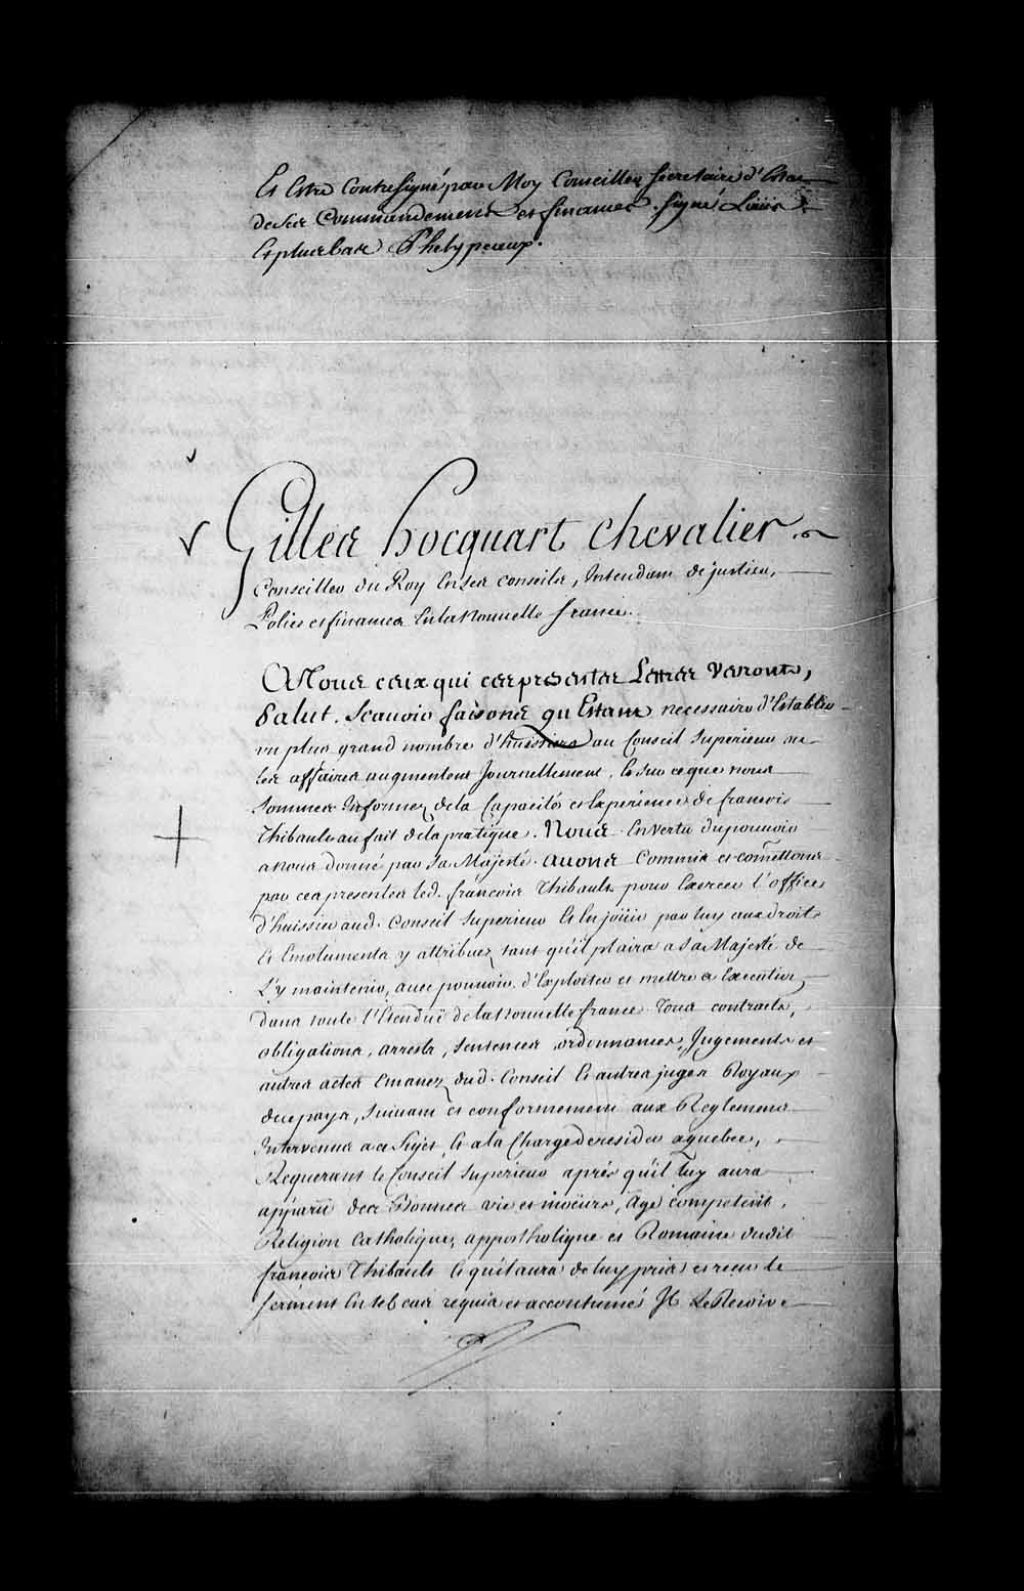 Et Estre Contresigné par Moy Conseiller Secretaire d'Estat
de Ses Commandemens et finances. signé Louis
Et plus bas Phelypeaux.
Gilles hocquart chevalier
Conseiller du Roy En ses conseils, Intendant de justice,
Police et finances En la Nouvelle france.
A Tous ceux qui ces presentes Lettres Verront,
Salut. Scavoir faisons qu'Estant necessaire d'Establir
un plus grand nombre d'huissiers au Conseil Superieur ou
les affaires augmentent Journellement, Et sur ce que nous
sommes Informez de la Capacité et Experience de francois
Thibault au fait de la pratique. Nous En vertu du pouvoir
a nous donné par Sa Majesté. avons Commis et com̃ettons
par ces presentes led. francois Thibault pour Exercer l'office
d'huissier aud. Conseil Superieur Et En joüir par luy aux droits
Et Emolumens y attribuez tant qu'il plaira a Sa Majesté de
L'y maintenir, avec pouvoir d'Exploiter et mettre a Execution,
dans toute l'Etenduë de la Nouvelle france Tous contracts,
obligations, arrests, sentences ordonnances, Jugements et
autres actes Emanez dud. Conseil Et autres juges Royaux
de ce pays, suivant et conformement aux Reglemens
Intervenus a ce Sujet, Et a la Charge de resider a quebec,
Requerant le Conseil Superieur aprés qu'il luy aura
apparu des Bonnes vie et moeurs, Age competent,
Religion Catholique, appostholique et Romaine dudit
francois Thibault Et qu'il aura de luy pris et receu le
serment En tel cas requis et accoutumés Il Le Recoive